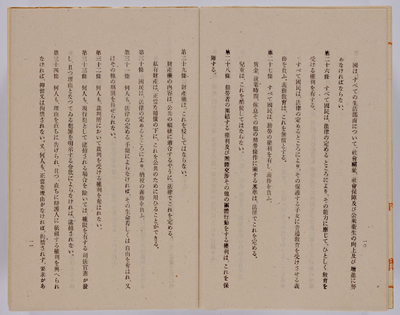 國は、すべての生活部面について、社會福祉、社會保障及び公衆衞生の向上及び增進に努
めなければならない。
第二十六條　すべて國民は、法律の定めるところにより、その能力に應じて、ひとしく敎育を
受ける權利を有する。
すべて國民は、法律の定めるところにより、その保護する子女に普通敎育を受けさせる義
務を負ふ。義務敎育は、これを無償とする。
第二十七條　すべて國民は、勤勞の權利を有し、義務を負ふ。
賃金、就業時間、休息その他の勤勞條件に關する基準は、法律でこれを定める。
兒童は、これを酷使してはならない。
第二十八條　勤勞者の團結する權利及び團體交渉その他の團體行動をする權利は、これを保
障する。
一〇
第二十九條　財產權は、これを侵してはならない。
財產權の內容は、公共の福祉に適合するやうに、法律でこれを定める。
私有財產は、正當な補償の下に、これを公共のために用ひることができる。
第三十條　國民は、法律の定めるところにより、納稅の義務を負ふ。
第三十一條　何人も、法律の定める手續によらなければ、その生命若しくは自由を奪はれ、又
はその他の刑罰を科せられない。
第三十二條　何人も、裁判所において裁判を受ける權利を奪はれない。
第三十三條　何人も、現行犯として逮捕される場合を除いては、權限を有する司法官憲が發
し、且つ理由となつてゐる犯罪を明示する令狀によらなければ、逮捕されない。
第三十四條　何人も、理由を直ちに告げられ、且つ、直ちに辯護人に依賴する權利を與へられ
なければ、抑留又は拘禁されない。又、何人も、正當な理由がなければ、拘禁されず、要求があ
一一